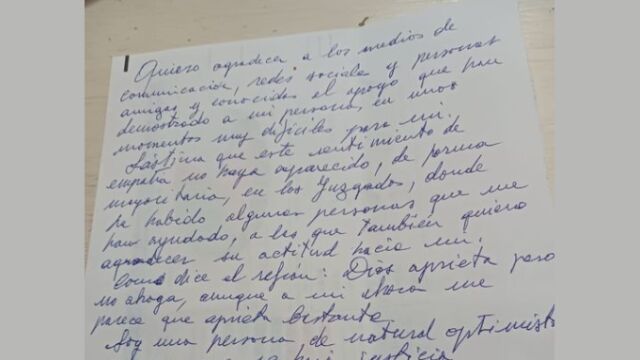 Quiero agradecer a los medios de
comunicación, redes sociales y personas
amigas y conocidas el apoyo que han
demostrado a mi persona, en unos
momentos muy difíciles para mi.
Lástima que este sentimiento de
empatia no haya aparecido, de forma
mayoritaria, en los Juzgados, donde
ha habido algunas personas que me
han ayudado, a las que también quiero
agradecer su actitud hacia mi.
Como dice el refrán: Dios aprieta pero
no ahoga, aunque a mi ahora me
parece que aprieta bastante.
Soy una persona, de natural optimista
mi justicia